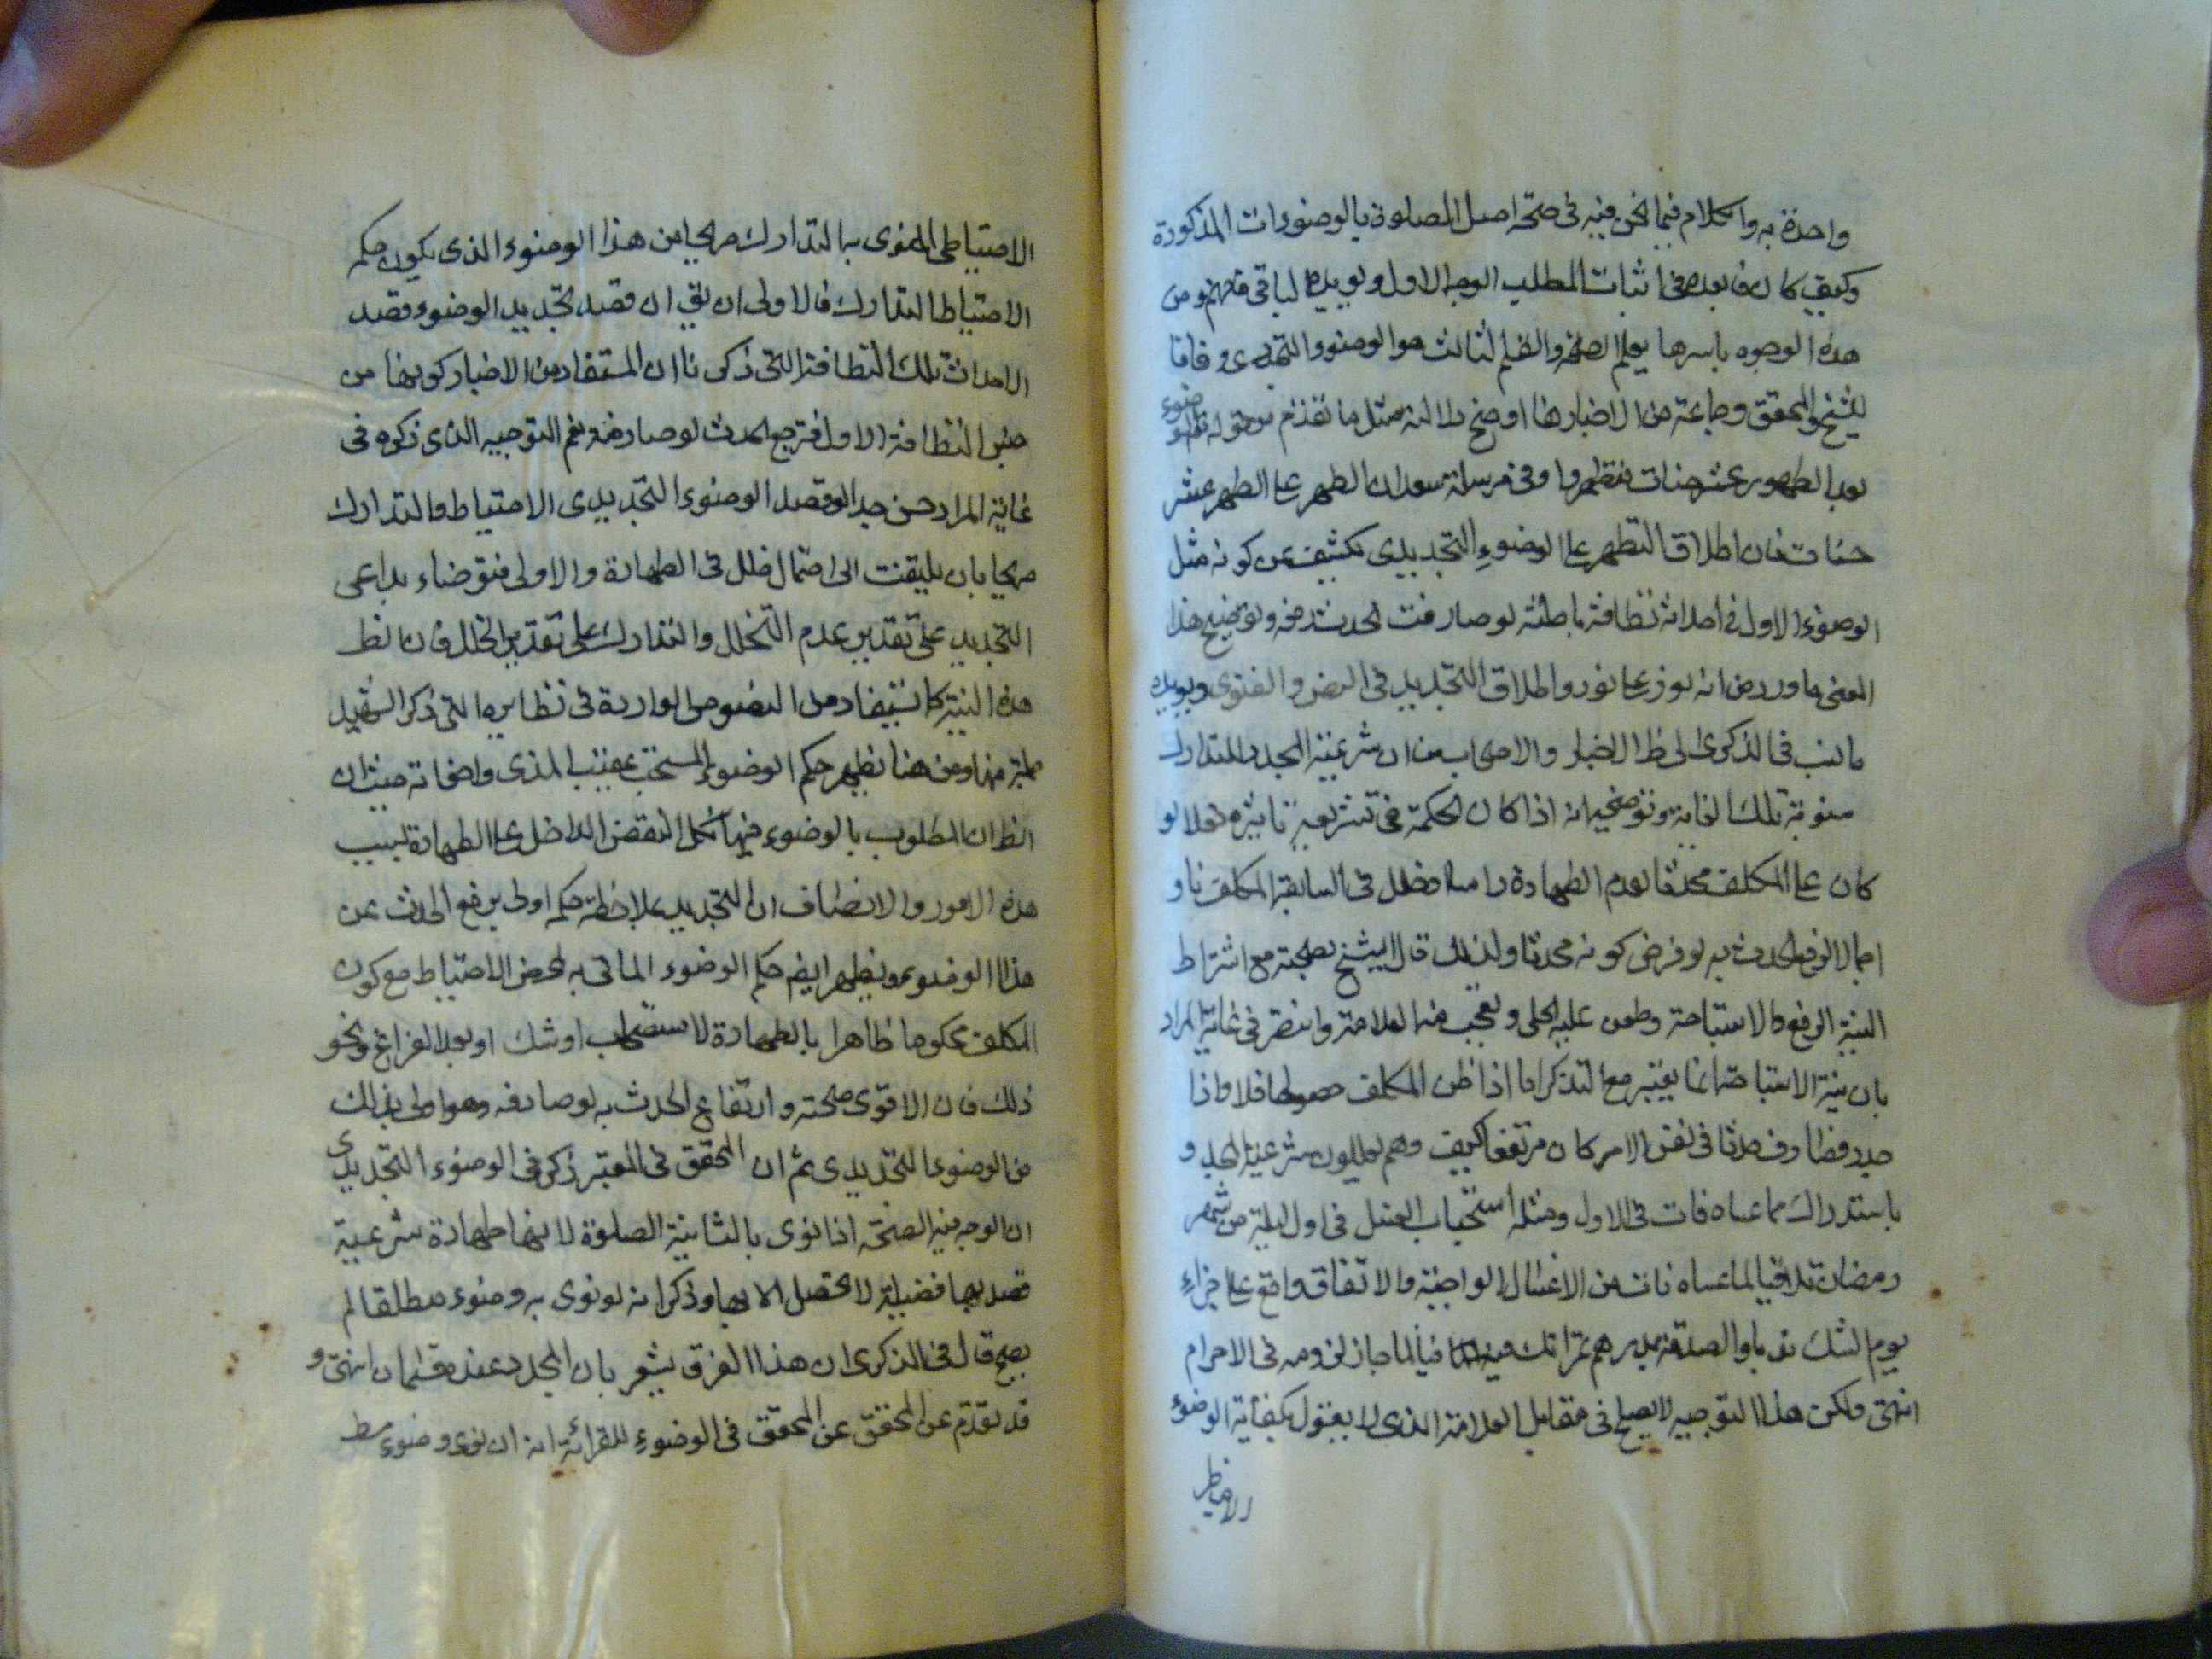 واحدة به والكلام فيما نحن فيه في صحة اصل الصلوة بالوضوءات المذكورة
وكيف كان فالعمدة في اثبات المطلب الوجه الاول ويؤيده الباقي فافهم ومن
هذه الوجوه باسرها يعلم الصحة والقسم الثالث هو الوضوء التجديدي وفاقا
للشيخ والمحقق وجماعة من الاخبار هنا اوضح دلالة مثل ما تقدم من قوله الوضوء
بعد الطهور عشر حسنات فتطهروا وفي مرسلة سعدان الطهر على الطهر عشر
حسنات فان اطلاق التطهر على الوضوء التجديدي يكشف عن كونه مثل
الوضوء الاول في احداثه نظافة باطنة لو صادفت الحدث رفعه ويوضح هذا
المعنى ما ورد من انه نور على نور واطلاق التجديد في النص والفتوى ويؤيده
ما نسب في الذكرى الى ظ الاخبار والاصحاب من ان شرعية المجدد للتدارك
منوية تلك الغاية وتوضيحه انه اذا كان الحكمة في تشريعه تاثيره فعلا لو
كان على المكلف محدثا لعدم الطهارة راسا او خلل في السابقة المكلف ناو
اجمالا لرفع الحدث به لو فرض كونه محدثا ولذلك قال الشيخ بصحته مع اشتراط
النية الرفع والاستباحة وطعن عليه الحلي وتعجب منه العلامة وانتصر في غاية المراد
بان نية الاستباحة انما يعتبر مع التذكر اما اذا ظن المكلف حصولها فلا واذا
جدد فصادف حدثا في نفس الامر كان مرتفعا كيف وهم يعللون شرعية المجدد و
باستدراك ما عساه فات في الاول ومثله استحباب الغسل في اول ليلة من شهر
رمضان تلافيا لما عساه فات من الاغسال الواجبة والاتفاق واقع على اجزاء
يوم الشك ندبا والصدقة بدرهم تمرا تلافيا لما جاز لزومه في الاحرام
انتهى ولكن هذا التوجيه لا يصلح في مقابل العلامة الذي لا يقول بكفاية الوضوء
الاحتياطي
الاحتياطي المنوي به التدارك صريحا من هذا الوضوء الذي يكون حكمه
الاحتياط التدارك فالاولى ان يق ان قصد تجديد الوضوء قصد
الاحداث تلك النظافة التي ذكرنا ان المستفاد من الاخبار كونها من
جنس النظافة الاول فترفع الحدث لو صادفه نعم التوجيه الذي ذكره في
غاية المراد حسن جدا لو قصد الوضوء التجديدي الاحتياط والتدارك
صريحا بان يلتفت الى احتمال خلل في الطهارة الاولى فتوضاء بداعي
التجديد على تقدير عدم التخلل والتدارك على تقدير الخلل فان الظ
هذه النية كما يستفاد من النصوص الواردة في نظايرها التي ذكر الشهيد
جملة منها ومن هنا يظهر حكم الوضوء المستحب عقيب المذي واخواته حيث ان
الظ ان المطلوب بالوضوء فيها تكمل النقص الداخل على الطهارة بسبب
هذه الامور والانصاف ان التجديد بملاحظة حكمه اولى برفع الحدث من
هذا الوضوء ويظهر ايضا حكم الوضوء الماتى به لمحض الاحتياط مع كون
المكلف محكوما ظاهرا بالطهارة لاستصحاب او شك او بعد الفراغ ونحو
ذلك فان الاقوى صحته وارتفاع الحدث به لو صادفه وهو اولى بذلك
من الوضوء التجديدي ثم ان المحقق في المعتبر ذكر في الوضوء التجديدي
ان الوجه فيه الصحة اذا نوى بالثانية الصلوة لانها طهارة شرعية
قصد بها فضيلة لا تحصل الا بها وذكر انه لو نوى به وضوء مطلقا لم
يصح قال في الذكرى ان هذا الفرق يشعر بان المجدد عنده قسمان انتهى و
قد تقدم عن المحقق عن المحقق في الوضوء للقرائة انه ان نوى وضوء مط